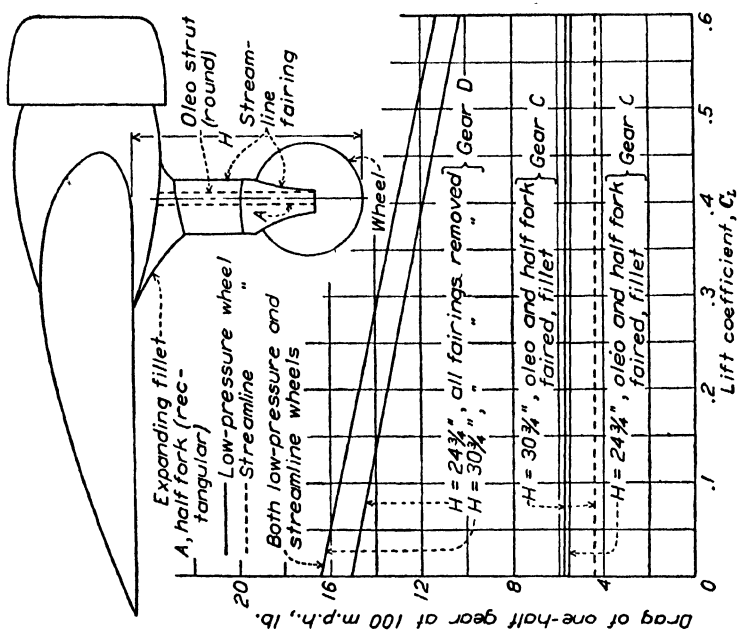 Oleo strut
(round)
H
Stream-
line
fairing
A
Wheel
Expanding fillet
A, half fork (rec-
tangular)
Low-pressure wheel
Streamline "
Both low-pressure and
streamline wheels
H = 24¾", all fairings removed } Gear D
H = 30¾", " " "
H = 30¾", oleo and half fork } Gear C
faired, fillet
H = 24¾", oleo and half fork } Gear C
faired, fillet
Drag of one-half gear at 100 m.p.h., lb.
20
16
12
8
4
0
.1
.2
.3
.4
.5
.6
Lift coefficient, C_L